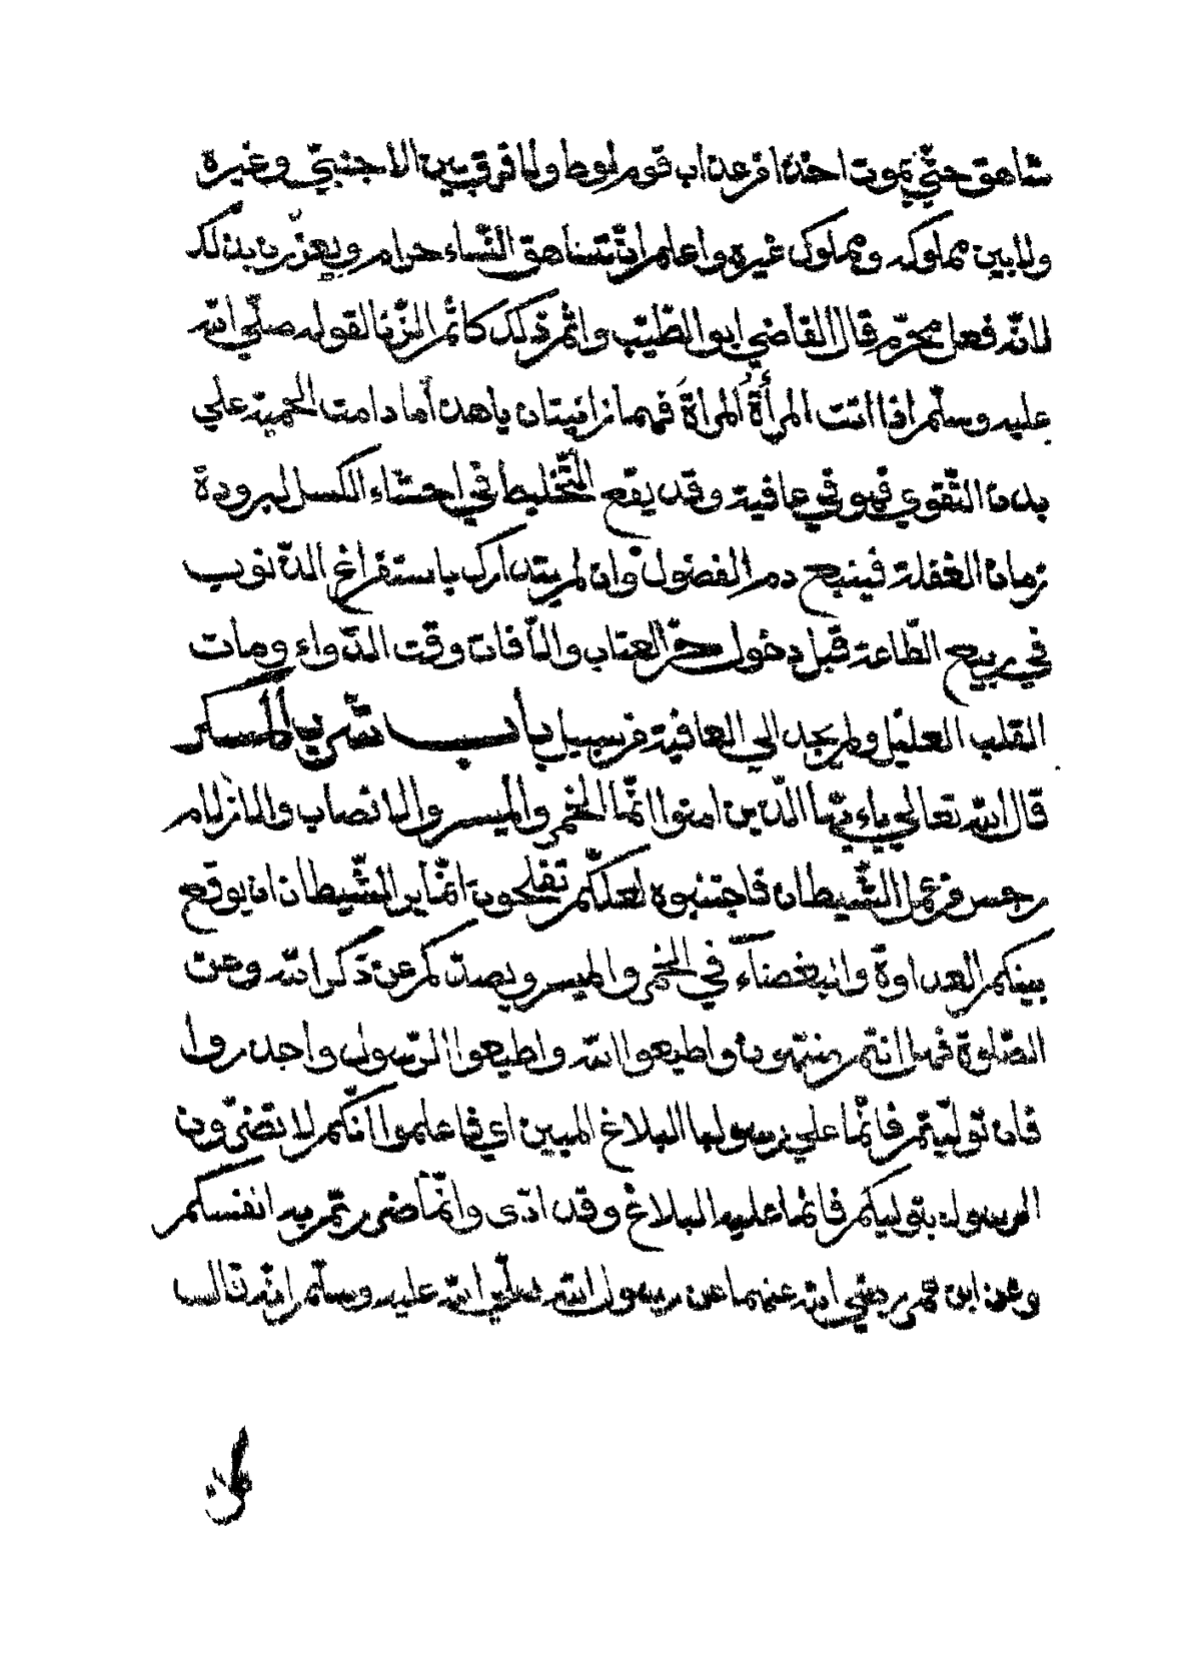 شاهق حتّي يموت اخذا من عذاب قوم لوط ولا فرق بين الاجنبيّ وغيره
ولا بين مملوكه ومملوك غيره واعلم انّ تساهق النّساء حرام ويعزّرن بذلك
لانّه فعل محرّم قال القاضي ابو الطّيّب واثم ذلك كاثم الزّنا لقوله صلّي الله
عليه وسلّم اذا اتت المرأة المرأة فهما زانيتان ياهذا ما دامت الحمية علي
بدن التّقوي فهو في عافية وقد يقع التّخليط في احشاء الكسل لبرودة
زمان الغفلة فينبع دم الفضول وان لم يتدارك باستفراغ الذّنوب
في ربيع الطّاعة قبل دخول حرّ العتاب والآفات وقت الدّواء ومات
القلب العليل ولم يجد الي العافية من سبيل باب شرب المسكر
قال الله تعالي ياءيّها الّذين امنوا انّما الخمر والميسر والانصاب والازلام
رجس من عمل الشّيطان فاجتنبوه لعلّكم تفلحون انّما يريد الشّيطان ان يوقع
بينكم العداوة والبغضآء في الخمر والميسر ويصدّكم عن ذكر الله وعن
الصّلوة فهل انتم منتهون واطيعوا الله واطيعوا الرّسول واحذروا
فان تولّيتم فانّما علي رسولنا البلاغ المبين اي فاعلموا انّكم لا تضرّون
الرسول بتوليكم فانما عليه البلاغ وقد ادّى وانّما ضررتم به انفسكم
وعن ابن عمر رضي الله عنهما عن رسول الله صلّي الله عليه وسلّم انّه قال
كل